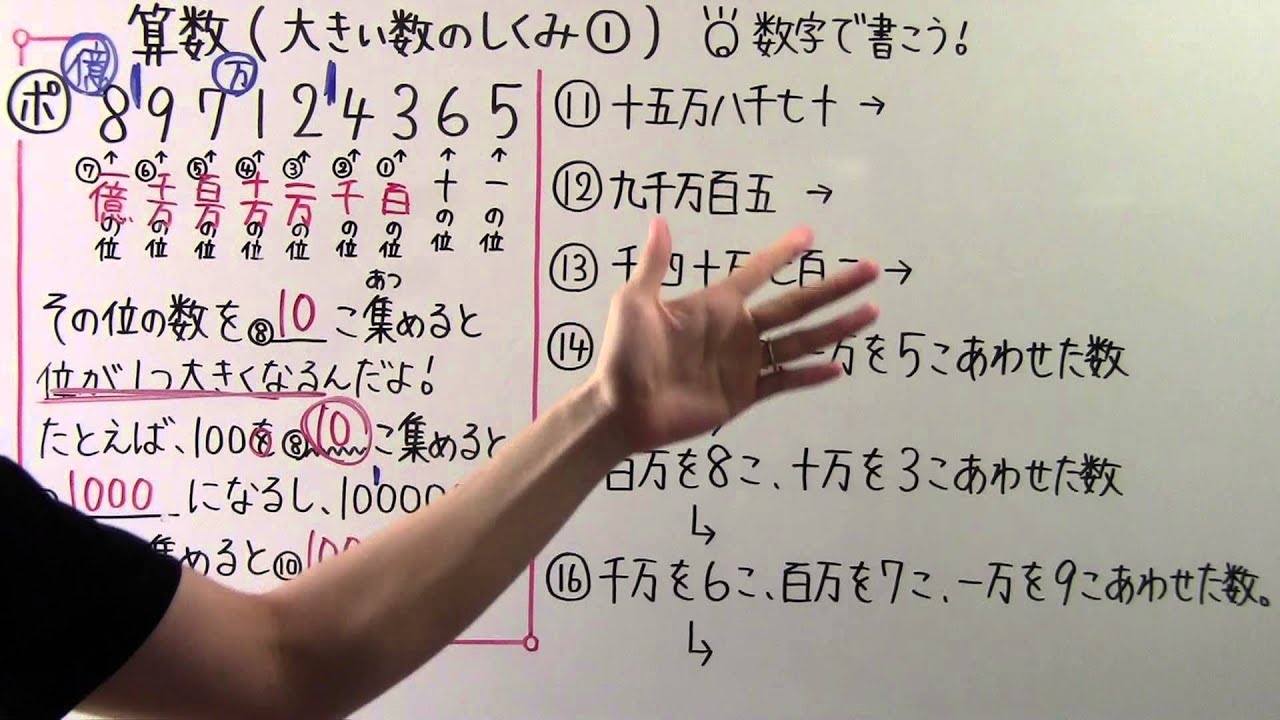 算数(大きい数のしくみ①) 数字で書こう!
ポ
億 万
8 9 7 1 2 4 3 6 5
⑦ ⑥ ⑤ ④ ③ ② ①
一億の位 千万の位 百万の位 十万の位 一万の位 千の位 百の位 十の位 一の位
あつ
その位の数を⑧10こ集めると
位が1つ大きくなるんだよ!
たとえば、100を⑧10こ集めると
1000になるし、10000
集めると⑩
⑪十五万八千七十→
⑫九千万百五→
⑬千四十万 百 →
⑭ 一万を5こあわせた数
百万を8こ、十万を3こあわせた数
↳
⑯千万を6こ、百万を7こ、一万を9こあわせた数。
↳